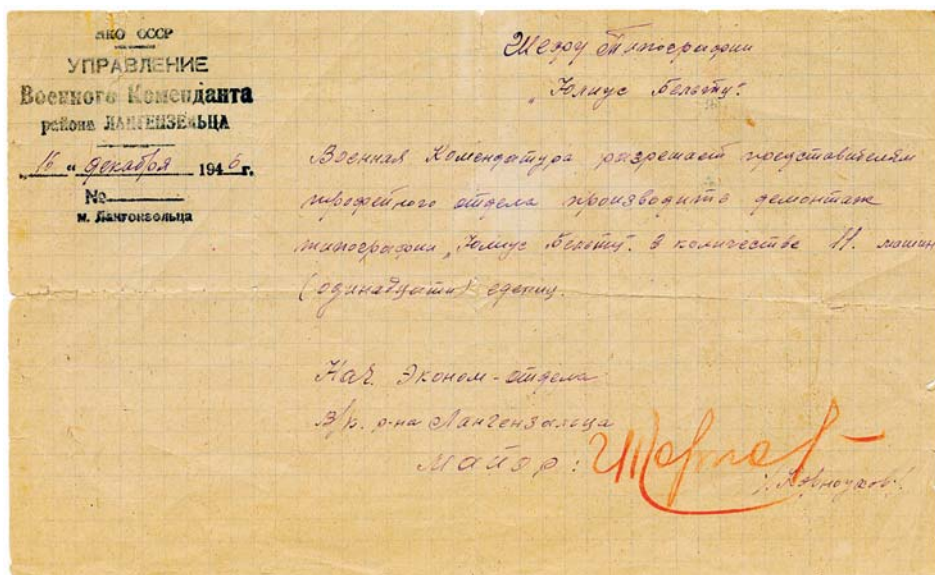 НКО СССР
УПРАВЛЕНИЕ
Военного Коменданта
района ЛАНГЕНЗЕЛЬЦА
„16" декабря 1946 г.
№
м. Лангонзольца
Шефу Типографии
„Юлиус Бельтц".
Военная Комендатура разрешает представителям
трофейного отдела производить демонтаж
типографии „Юлиус Бельтц". в количестве 11. машин
(одинадцати) едениц.
Нач. Эконом-отдела
В/к. р-на Лангензальца
майор: